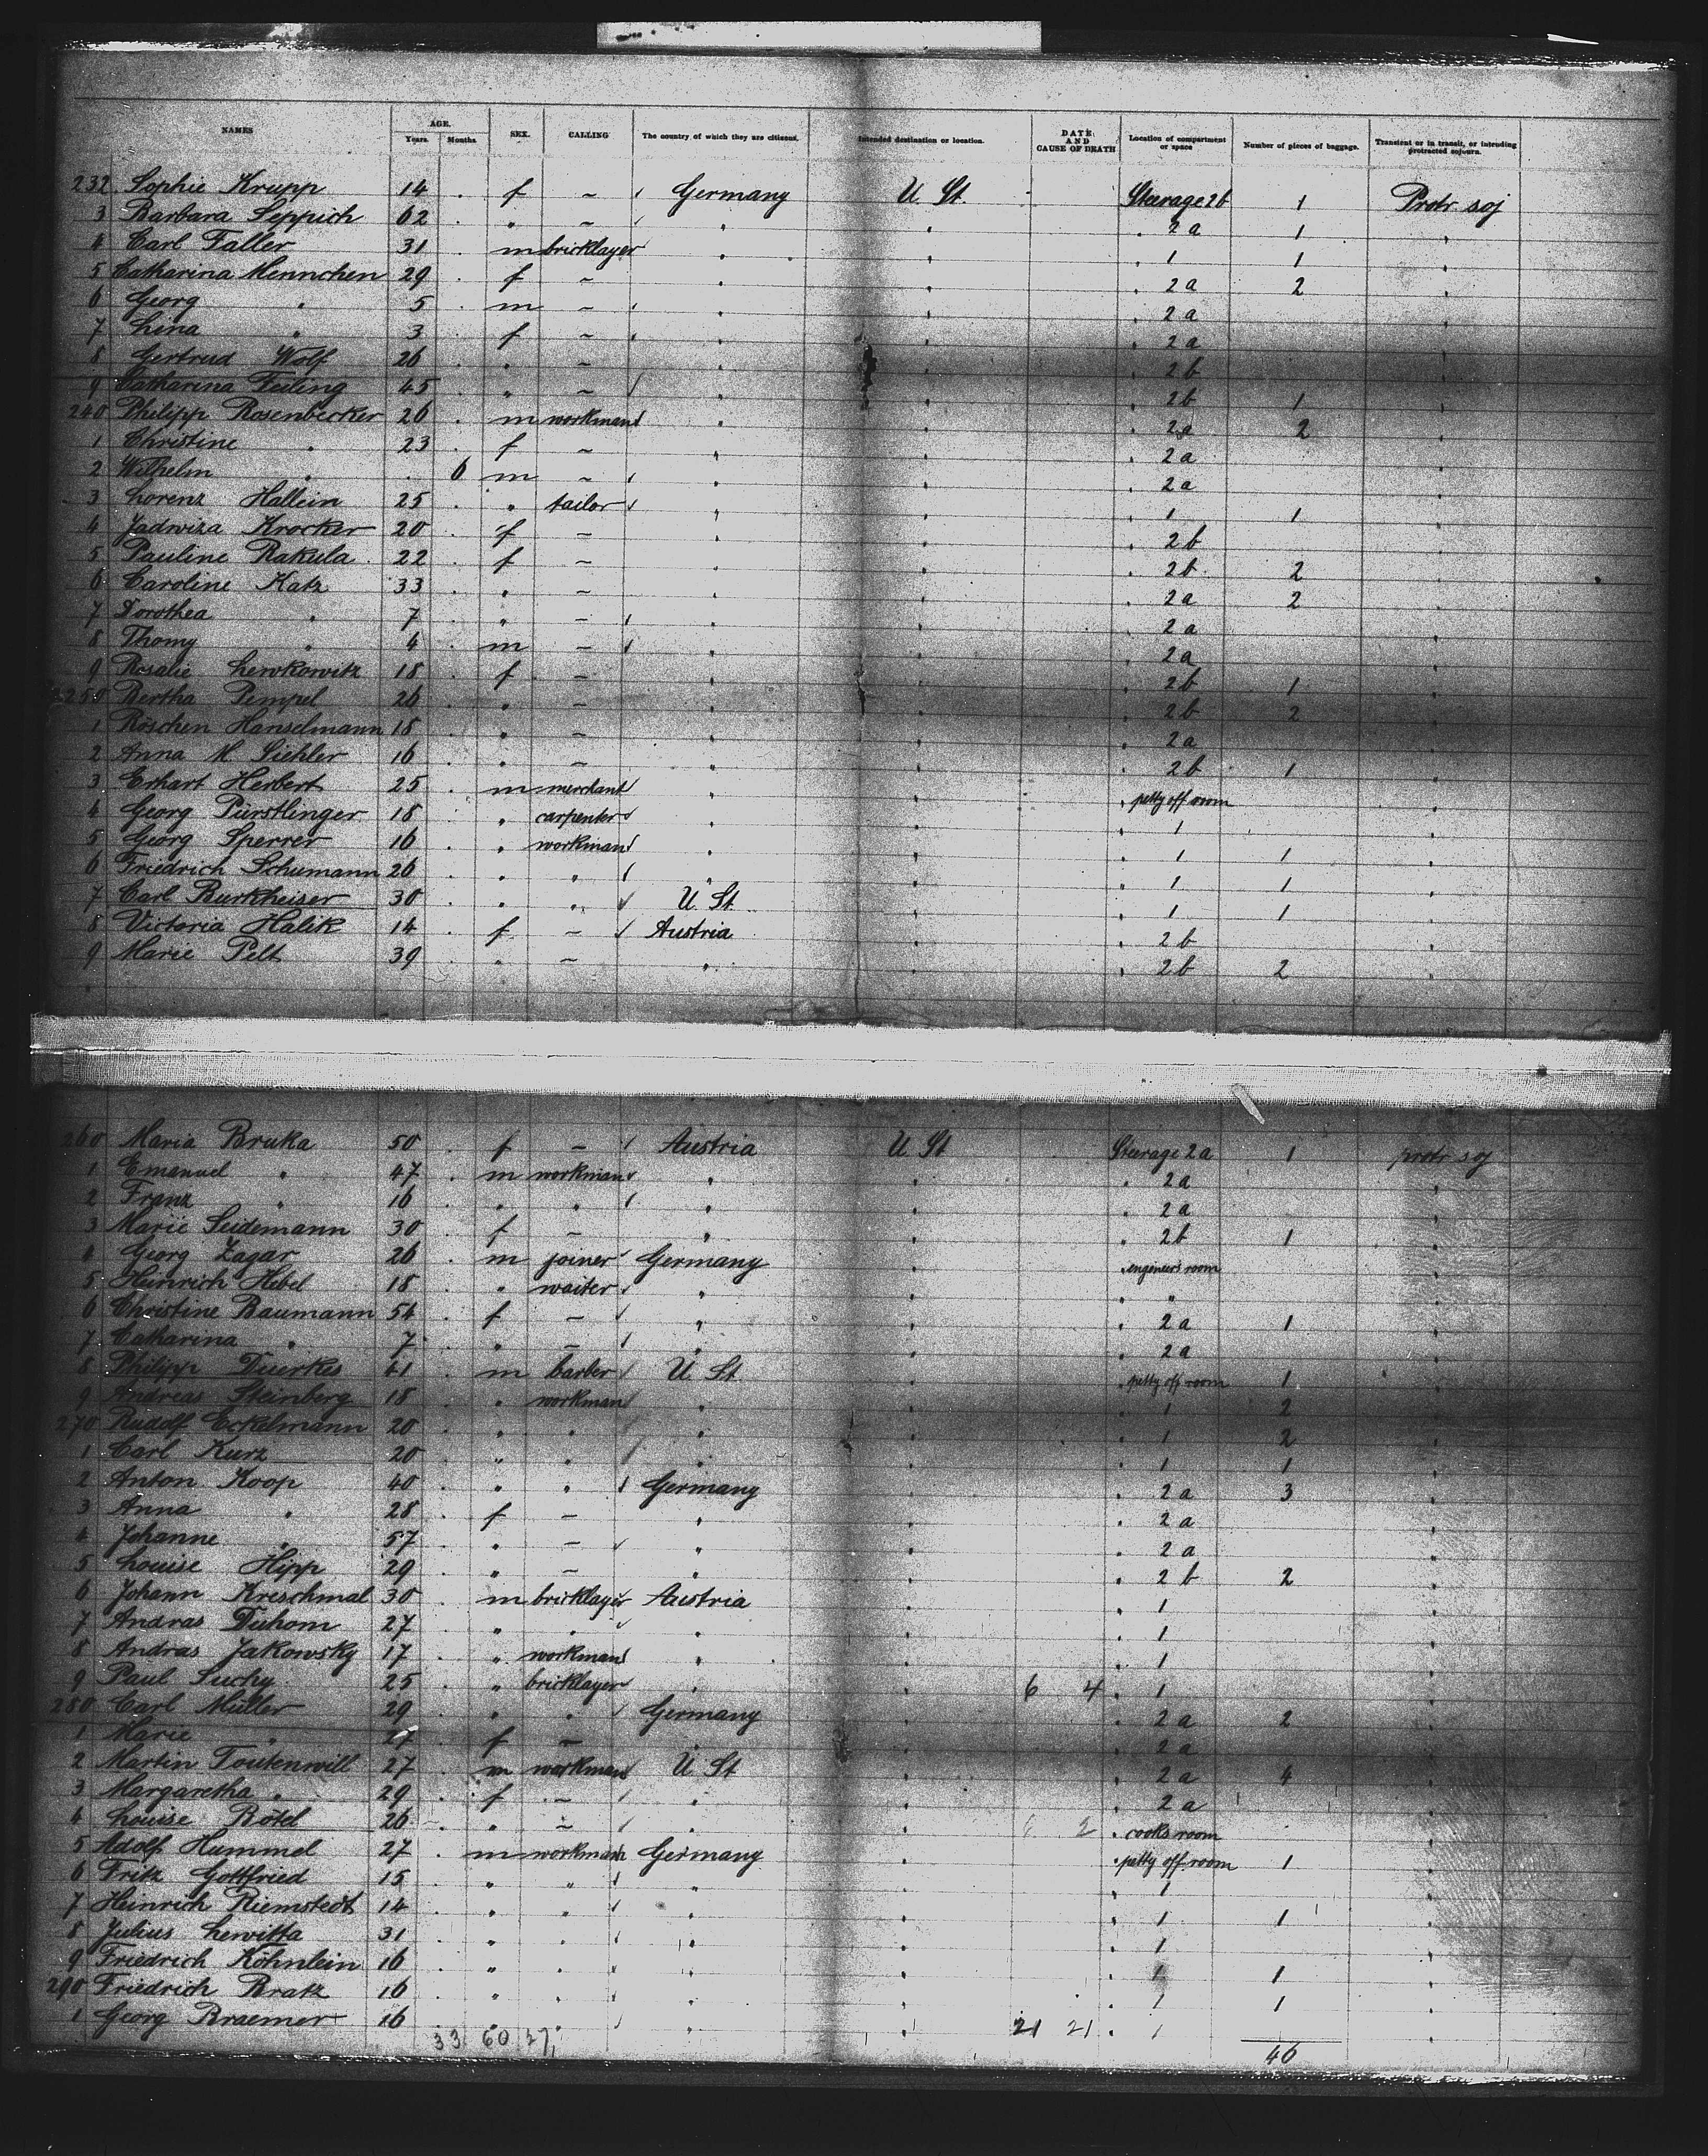 NAMES AGE. Years. Months SEX. CALLING The country of which they are citizens. Intended destination or location. DATE AND CAUSE OF DEATH Location of compartment or space Number of pieces of baggage. Transient or in transit, or intending protracted sojourn.
232 Sophie Krupp 14 f ~ Germany U St. Steerage 2b 1 Protr. soj
3 Barbara Seppich 62 " ~ " " " 2a 1 "
4 Carl Faller 31 m bricklayer " " " 1 1 "
5 Catharina Mennchen 29 f ~ " " " 2a 2 "
6 Georg " 5 m ~ " " " 2a "
7 Lina " 3 f ~ " " " 2a "
8 Gertrud Wolf 26 " ~ " " " 2b "
9 Catharina Feiling 45 " ~ " " " 2b 1 "
240 Philipp Rosenbecker 26 m workman " " " 2a 2 "
1 Christine " 23 f ~ " " " 2a "
2 Wilhelm " 6 m ~ " " " 2a "
3 Lorenz Hallein 25 " tailor " " " 1 1 "
4 Jadwiza Krocker 20 f ~ " " " 2b "
5 Pauline Rakula 22 f ~ " " " 2b 2 "
6 Caroline Katz 33 " ~ " " " 2a 2 "
7 Dorothea " 7 " ~ " " " 2a "
8 Thomy " 4 m ~ " " " 2a "
9 Rosalie Lewkowitz 18 f ~ " " " 2b 1 "
250 Bertha Pempel 26 " ~ " " " 2b 2 "
1 Röschen Hanselmann 18 " ~ " " " 2a "
2 Anna M Siehler 16 " ~ " " " 2b 1 "
3 Erhart Herbert 25 m merchant " " " petty off room "
4 Georg Pürstlinger 18 " carpenter " " " 1 "
5 Georg Sperrer 16 " workman " " " 1 1 "
6 Friedrich Schumann 26 " " " " " 1 1 "
7 Carl Burkheiser 30 " " U. St. " " 1 1 "
8 Victoria Halik 14 f ~ Austria " " 2b "
9 Marie Pelt 39 " ~ " " " 2b 2 "
260 Maria Bruka 50 f ~ Austria U St Steerage 2a 1 protr soj
1 Emanuel " 47 m workman " " " 2a "
2 Franz " 16 " " " " " 2a "
3 Marie Seidemann 30 f ~ " " " 2b 1 "
4 Georg Zagar 26 m joiner Germany " " engeneers room "
5 Heinrich Hebel 18 " waiter " " " " "
6 Christine Baumann 54 f ~ " " " 2a 1 "
7 Catharina " 7 " ~ " " " 2a "
8 Philipp Duerkes 41 m barber U St " " petty off room 1 "
9 Andreas Steinberg 18 " workman " " " 1 2 "
270 Rudolf Eckelmann 20 " " " " " 1 2 "
1 Carl Kurz 20 " " " " " 1 1 "
2 Anton Koop 40 " " Germany " " 2a 3 "
3 Anna " 28 f ~ " " " 2a "
4 Johanne " 57 " ~ " " " 2a "
5 Louise Hipp 29 " ~ " " " 2b 2 "
6 Johann Kreschmal 30 m bricklayer Austria " " 1 "
7 Andras Duhom 27 " " " " " 1 "
8 Andras Jakowsky 17 " workman " " " 1 "
9 Paul Suchy 25 " bricklayer " " 6 4 " 1 "
280 Carl Müller 29 " " Germany " " 2a 2 "
1 Marie " 27 f ~ " " " 2a "
2 Martin Toutenwill 27 m workman U St " " 2a 4 "
3 Margaretha " 29 f ~ " " " 2a "
4 Louise Rötel 26 " ~ " " 2 " cooks room "
5 Adolf Hummel 27 m workman Germany " " petty off room 1 "
6 Fritz Gottfried 15 " " " " " 1 "
7 Heinrich Riemstedt 14 " " " " " 1 1 "
8 Julius Lewitta 31 " " " " " 1 "
9 Friedrich Köhnlein 16 " " " " " 1 1 "
290 Friedrich Bratz 16 " " " " " 1 1 "
1 Georg Braemer 16 " " " " 21 21 " 1 "
33 60 27 46